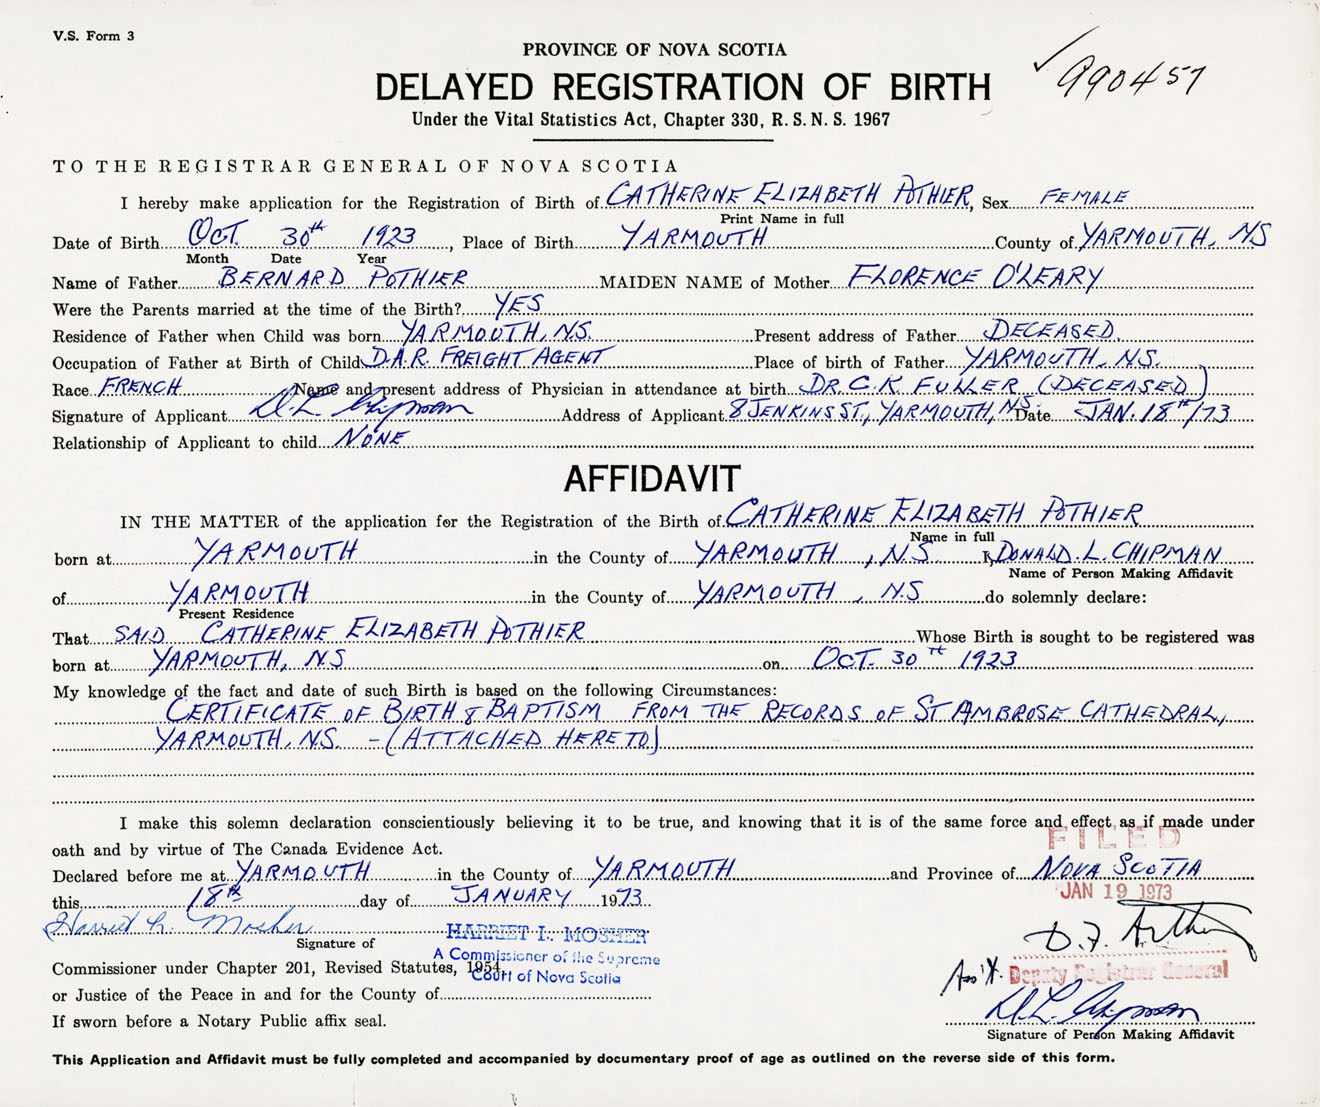 V.S. Form 3
PROVINCE OF NOVA SCOTIA
DELAYED REGISTRATION OF BIRTH
✓ 990457
Under the Vital Statistics Act, Chapter 330, R. S. N. S. 1967
TO THE REGISTRAR GENERAL OF NOVA SCOTIA
I hereby make application for the Registration of Birth of CATHERINE ELIZABETH POTHIER, Sex FEMALE
Print Name in full
Date of Birth OCT. 30th 1923, Place of Birth YARMOUTH County of YARMOUTH, NS
Month Date Year
Name of Father BERNARD POTHIER MAIDEN NAME of Mother FLORENCE O'LEARY
Were the Parents married at the time of the Birth? YES
Residence of Father when Child was born YARMOUTH, N.S. Present address of Father DECEASED.
Occupation of Father at Birth of Child D.A.R. FREIGHT AGENT Place of birth of Father YARMOUTH, N.S.
Race FRENCH Name and present address of Physician in attendance at birth DR. C. K FULLER (DECEASED)
Signature of Applicant D L Chipman Address of Applicant 8 JENKINS ST., YARMOUTH, NS. Date JAN. 18th/73
Relationship of Applicant to child NONE
AFFIDAVIT
IN THE MATTER of the application for the Registration of the Birth of CATHERINE ELIZABETH POTHIER
Name in full
born at YARMOUTH in the County of YARMOUTH, N.S I, DONALD. L. CHIPMAN
Name of Person Making Affidavit
of YARMOUTH in the County of YARMOUTH, NS do solemnly declare:
Present Residence
That SAID CATHERINE ELIZABETH POTHIER Whose Birth is sought to be registered was
born at YARMOUTH, N.S on OCT. 30th 1923
My knowledge of the fact and date of such Birth is based on the following Circumstances:
CERTIFICATE OF BIRTH & BAPTISM FROM THE RECORDS OF ST AMBROSE CATHEDRAL,
YARMOUTH, N.S. - (ATTACHED HERETO)
I make this solemn declaration conscientiously believing it to be true, and knowing that it is of the same force and effect as if made under
oath and by virtue of The Canada Evidence Act.
FILED
Declared before me at YARMOUTH in the County of YARMOUTH and Province of NOVA SCOTIA
JAN 19 1973
this 18th day of JANUARY 1973.
Harriet L. Mosher
HARRIET L. MOSHER
D. F. Arthur
Signature of
A Commissioner of the Supreme
Commissioner under Chapter 201, Revised Statutes, 1954
Court of Nova Scotia
Ass't. Deputy Registrar General
or Justice of the Peace in and for the County of
D. L. Chipman
If sworn before a Notary Public affix seal.
Signature of Person Making Affidavit
This Application and Affidavit must be fully completed and accompanied by documentary proof of age as outlined on the reverse side of this form.